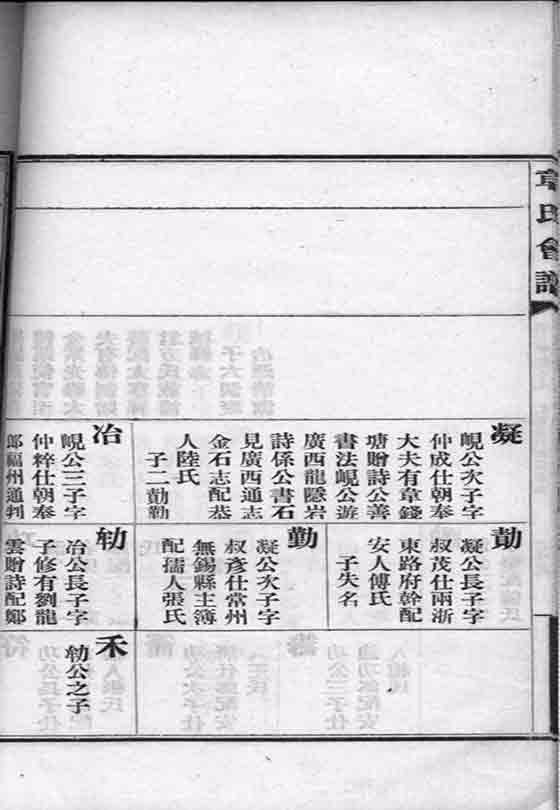 章氏會譜
凝
峴公次子字
仲成仕朝奉
大夫有章錢
塘贈詩公善
書法峴公遊
廣西龍隱岩
詩係公書石
見廣西通志
金石志配恭
人陸氏
子二勣勤
冶
峴公三子字
仲粹仕朝奉
郎福州通判
凝公長子字
叔茂仕兩浙
東路府幹配
安人傅氏
子失名
勤
凝公次子字
叔彥仕常州
無錫縣主簿
配孺人張氏
冶公長子字
子修有劉龍
雲贈詩配鄭
禾
勑公之子